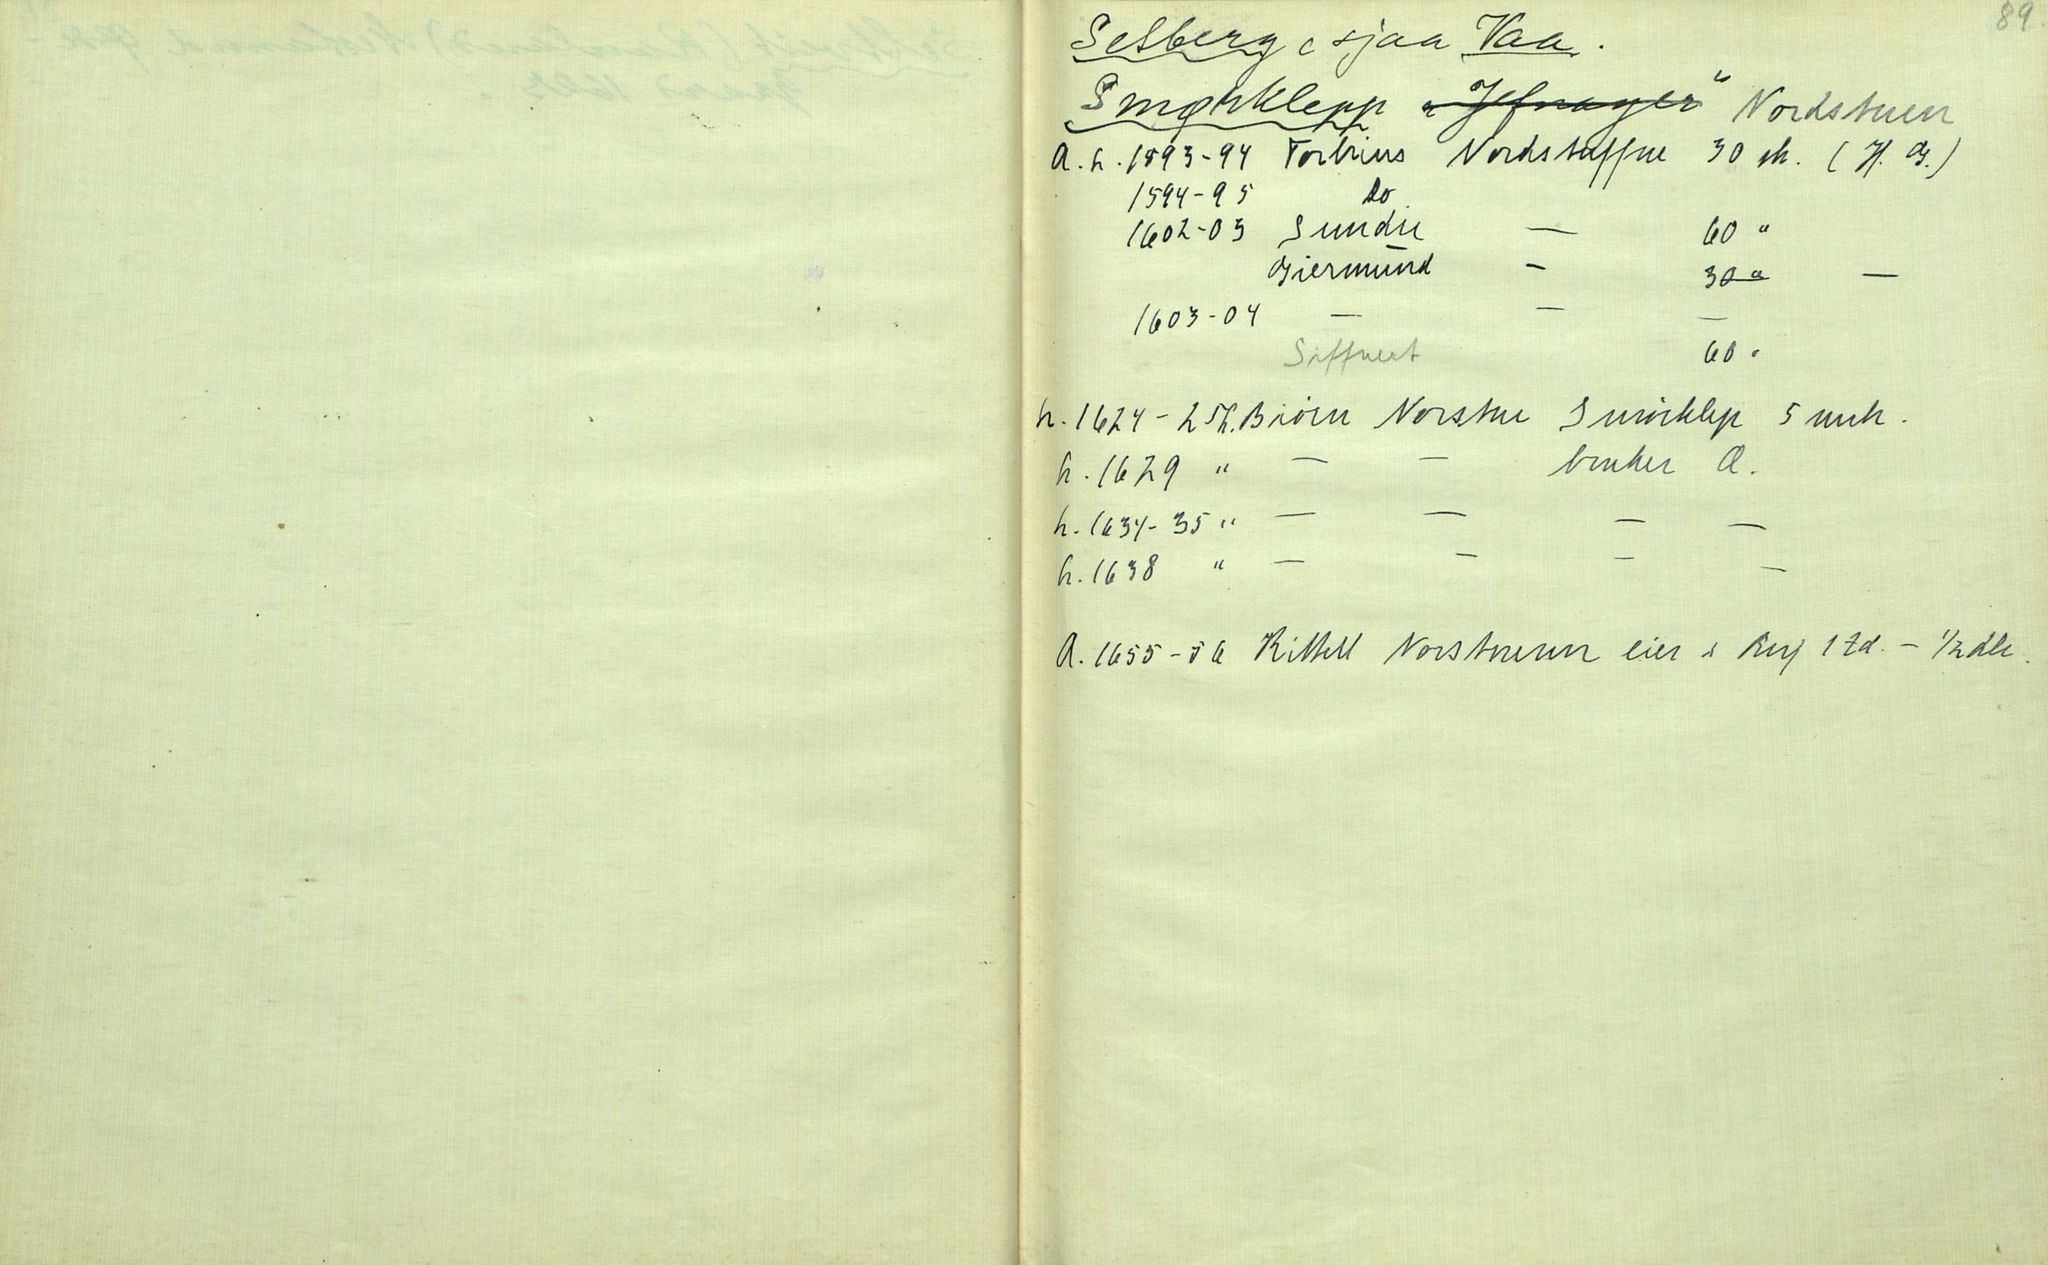 89.
Selberg, sjaa Vaa.
Smørklepp Nordstuen
A. h. 1593-94 Torbius Nordstuffue 30 sk. (H. G.)
1594-95 Do
1602-03 Sundre — 60 "
Giermund - 30 " —
1603-04 — — —
Siffuert 60 "
h. 1624-25 h. Biörn Norstue Smörklep 5 mrk.
h. 1629 " — — bruker Ø.
h. 1634-35 " — — — —
h. 1638 " — — — —
A. 1655-56 Kittell Norstuenn eier i 1 td. - 1/2 dlr.